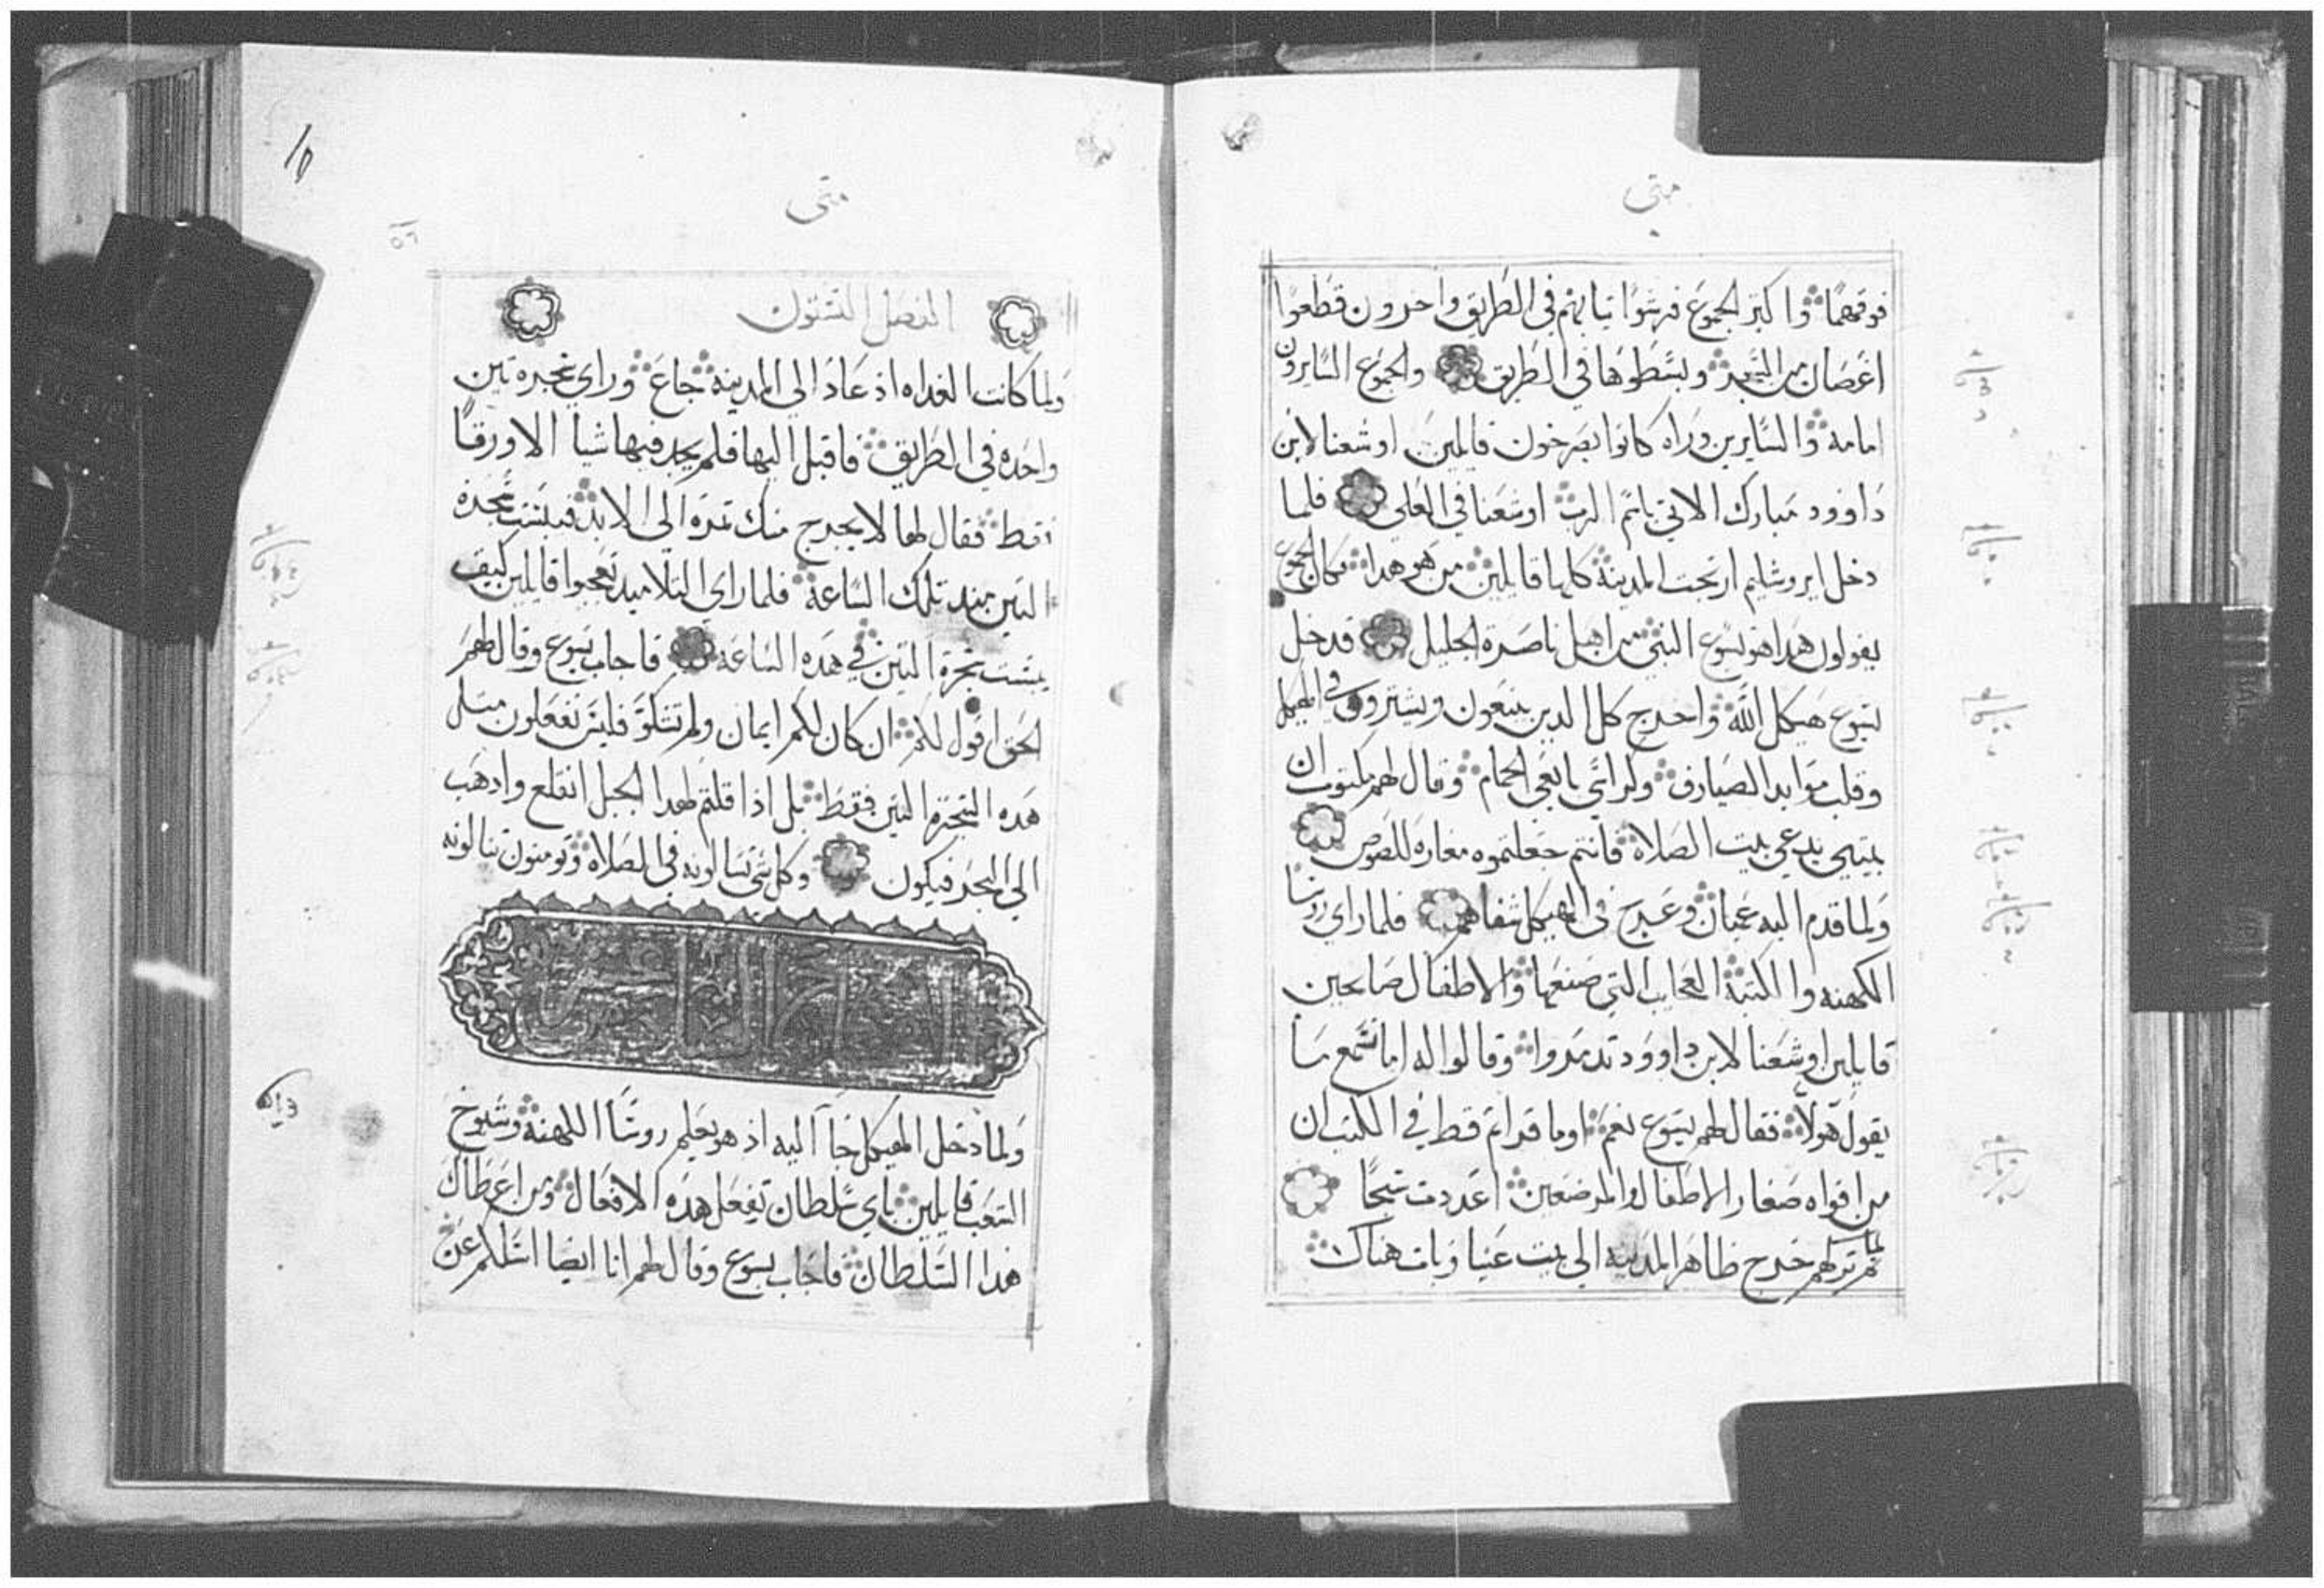 متى
فوقهما واكثر الجموع فرشوا ثيابهم في الطريق واخرون قطعوا
اغصان من الشجر وبسطوها في الطريق والجموع السايرون
امامه والسايرين وراه كانوا يصرخون قايلين اوشعنا لابن
داوود مبارك الاتي باسم الرب اوشعنا في العلي فلما
دخل ايروشليم ارتجت المدينة كلها قايلين من هو هدا فكان الجموع
يقولون هدا هو يسوع النبي من اهل ناصرة الجليل فدخل
يسوع هيكل الله واخرج كل الدين يبيعون ويشترون في الهيكل
وقلب موايد الصيارف وكراسي بايعي الحمام وقال لهم مكتوب ان
بيتي يدعي بيت الصلاة فانتم جعلتموه مغارة للصوص
ولما قدم اليه عميان وعرج في الهيكل شفاهم فلما راي روسا
الكهنه والكتبة العجايب التي صنعها والاطفال صايحين
قايلين اوشعنا لابن داوود تدمروا وقالوا له اما تسمع ما
يقول هولا فقال لهم يسوع نعم اوما قراتم قط في الكتب ان
من افواه صغار الاطفال والمرضعين اعددت سبحا
ثم تركهم خرج ظاهر المدينه الي بيت عنيا وبات هناك
متى
الفصل الستون
ولما كانت الغداه اذ عاد الي المدينه جاع وراي شجرة تين
واحده في الطريق فاقبل اليها فلم يجد فيها شيا الا ورقا
فقط فقال لها لا يخرج منك ثمره الي الابد فيبست شجرة
التين مند تلك الساعة فلما راي التلاميد تعجبوا قايلين كيف
يبست شجرة التين في هده الساعه فاجاب يسوع وقال لهم
الحق اقول لكم ان كان لكم ايمان ولم تشكوا فليس تفعلون مثل
هده الشجرة التين فقط بل اذا قلتم لهدا الجبل انقلع وادهب
الي البحر فيكون وكل شي تسالونه في الصلاة وتومنون تنالونه
ولما دخل الهيكل جا اليه اذ هو يعلم روسا الكهنة وشيوخ
الشعب قايلين باي سلطان تفعل هده الافعال ومن اعطاك
هدا السلطان فاجاب يسوع وقال لهم انا ايضا اسلكم عن